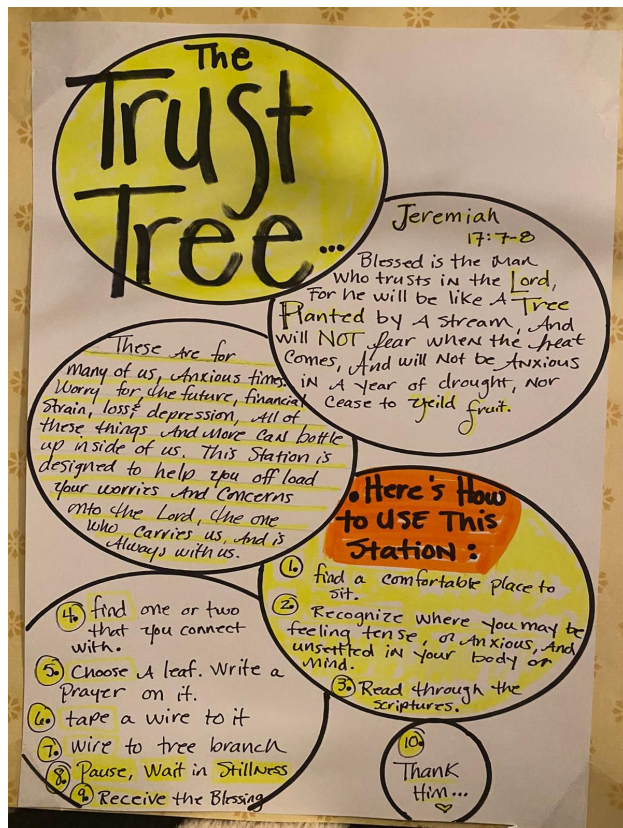 The
Trust
Tree...
Jeremiah
17:7-8
Blessed is the Man
Who trusts in the Lord,
For he will be like A Tree
Planted by A stream, And
will NOT fear when the heat
Comes, And will Not be Anxious
in A year of drought, Nor
Cease to yeild fruit.
These Are for
many of us, Anxious times.
Worry for the future, financial
Strain, loss & depression, All of
these things And More Can bottle
up inside of us. This Station is
designed to help you off load
your worries And Concerns
onto the Lord, the one
who carries us, And is
Always with us.
• Here's How
to USE This
Station:
1. find a comfortable place to
sit.
2. Recognize where you may be
feeling tense, or Anxious, And
unsettled in your body or
Mind.
3. Read through the
Scriptures.
4. find one or two
that you connect
with.
5. Choose A leaf. Write a
Prayer on it.
6. tape a wire to it
7. wire to tree branch
8. Pause, Wait in Stillness
9. Receive the Blessing
10.
Thank
Him...